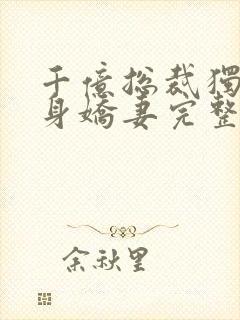 千億總裁獨
身嬌妻完整
余秋里